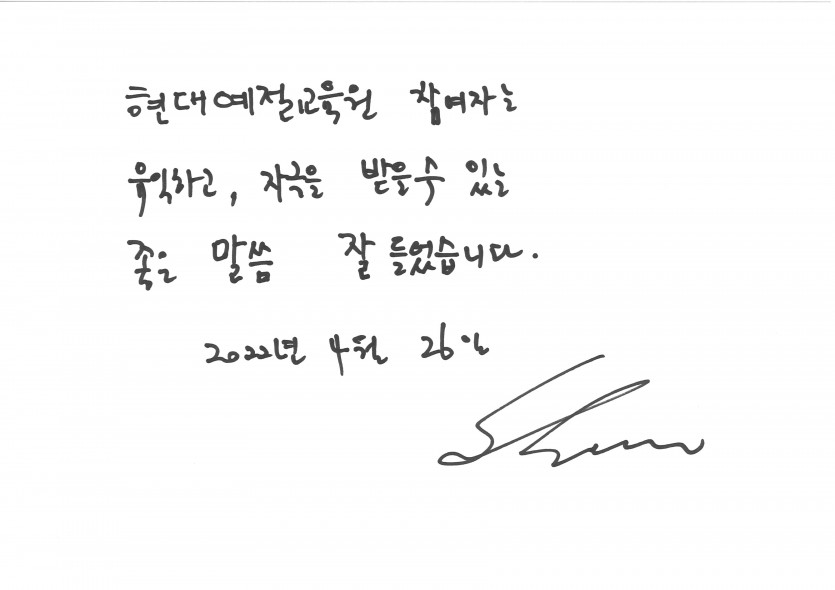 현대예절교육원 참여자는
유익하고, 자극을 받을수 있는
좋은 말씀 잘 들었습니다.
2022년 4월 26일